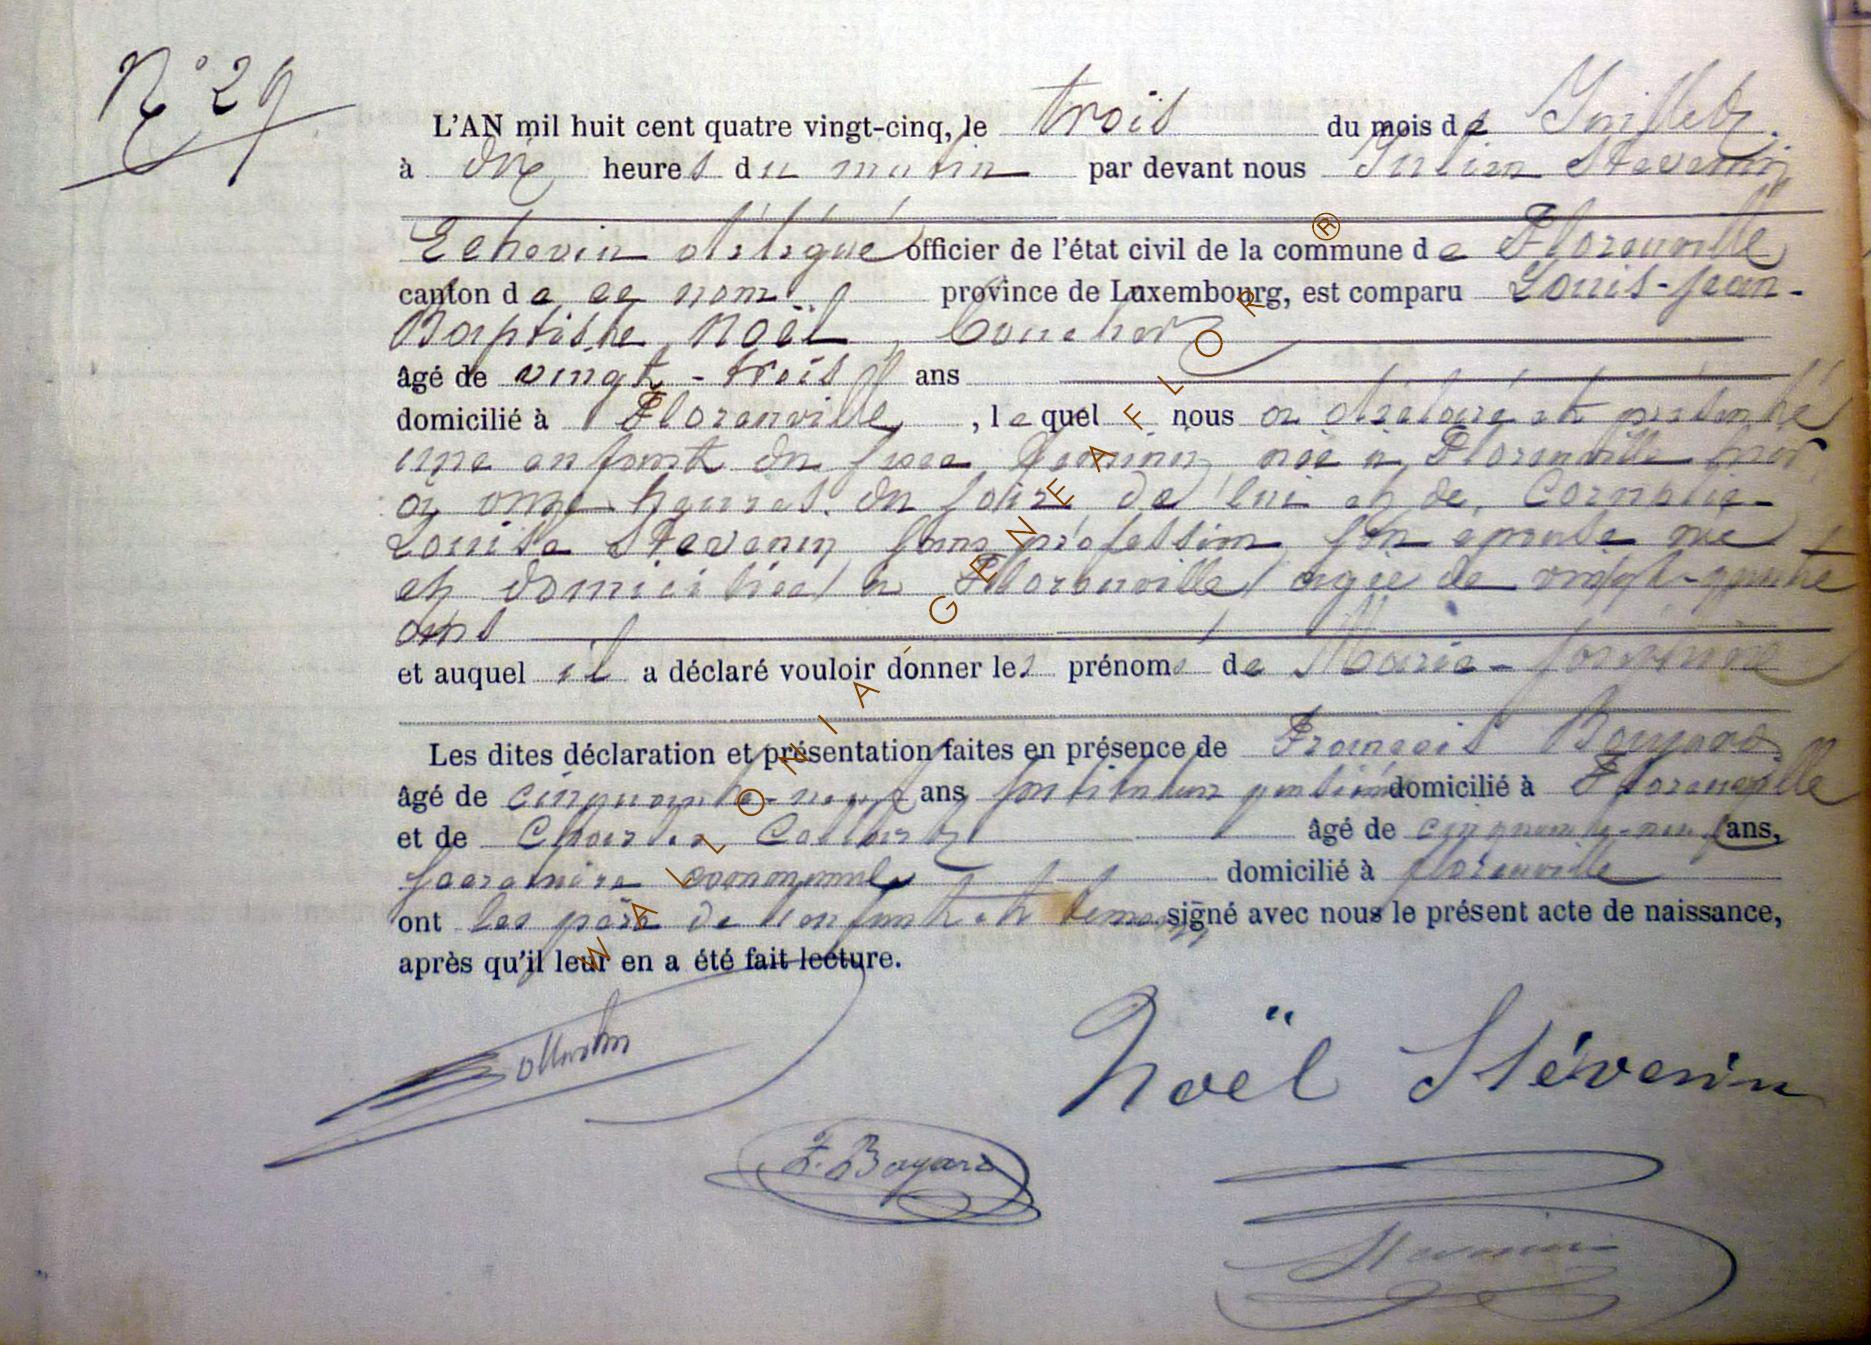 N° 29
L'AN mil huit cent quatre vingt-cinq, le trois du mois de Juillet
à dix heures du matin par devant nous Julien Stevenin
Echevin délégué officier de l'état civil de la commune de Florenville
canton de ce nom province de Luxembourg, est comparu Louis-Jean-
Baptiste Noël,
âgé de vingt-trois ans
domicilié à Florenville, lequel nous a déclaré et présenté
une enfant du sexe féminin, née à Florenville hier
à onze heures du soir de lui et de Cornélie-
Louise Stevenin sans profession son épouse née
et domiciliée à Florenville âgée de vingt-quatre
ans
et auquel il a déclaré vouloir donner les prénoms de Marie-
Les dites déclaration et présentation faites en présence de François Bayard
âgé de cinquante-neuf ans domicilié à Florenville
et de Charles âgé de cinquante-neuf ans,
secrétaire communal domicilié à Florenville
ont les père de l'enfant et témoins signé avec nous le présent acte de naissance,
après qu'il leur en a été fait lecture.
Noël Stévenin
F. Bayard
Stevenin
WALLONIA-GENEAFLOR ®